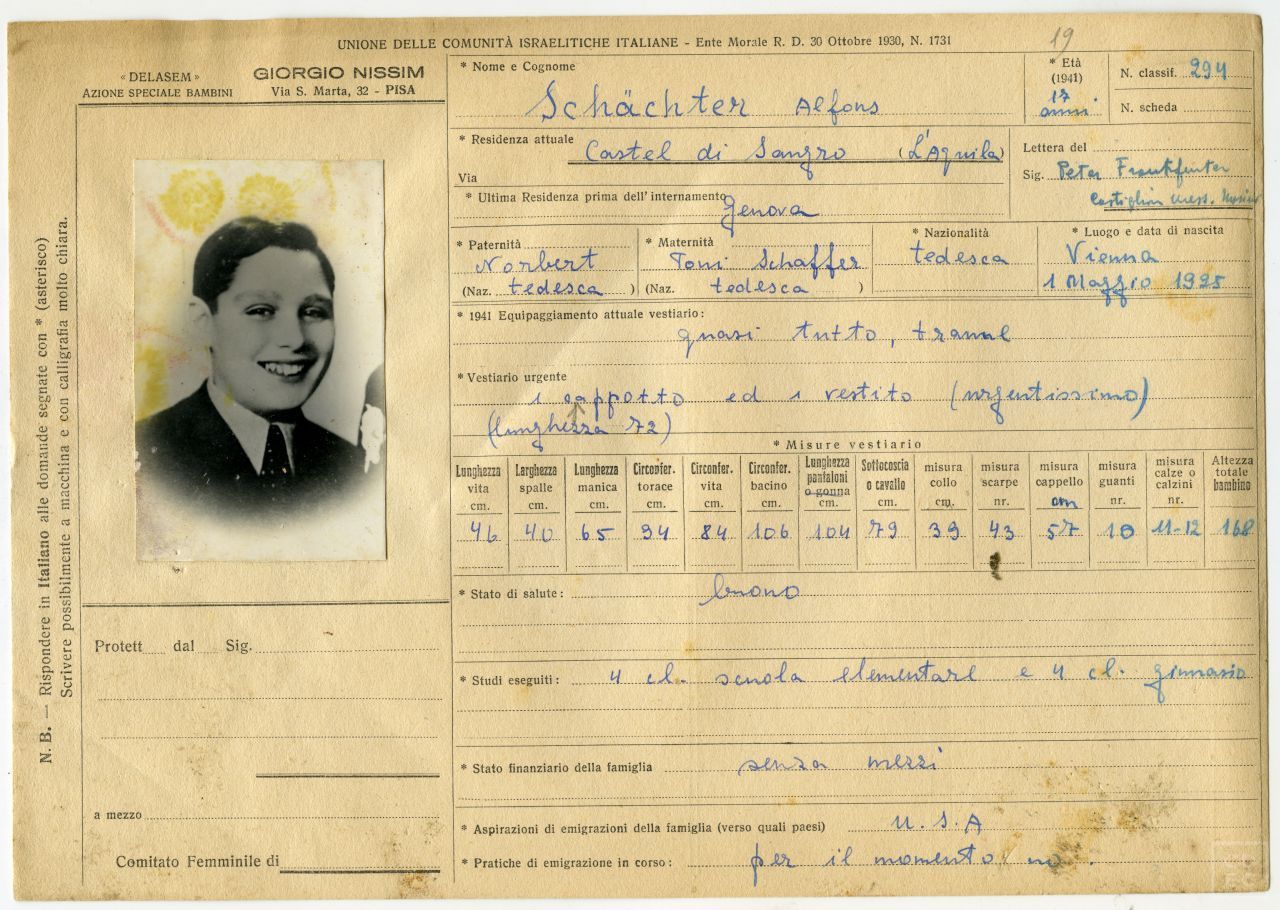 UNIONE DELLE COMUNITÀ ISRAELITICHE ITALIANE - Ente Morale R. D. 30 Ottobre 1930, N. 1731
19
« DELASEM »
AZIONE SPECIALE BAMBINI
GIORGIO NISSIM
Via S. Marta, 32 - PISA
* Nome e Cognome
Schächter Alfons
* Età
(1941)
17
anni
N. classif. 294
N. scheda
* Residenza attuale Castel di Sangro (L'Aquila)
Via
Lettera del
Sig. Peter
* Ultima Residenza prima dell'internamento Genova
* Paternità
Norbert
(Naz. tedesca )
* Maternità
Toni Schaffer
(Naz. tedesca )
* Nazionalità
tedesca
* Luogo e data di nascita
Vienna
1 Maggio 1925
* 1941 Equipaggiamento attuale vestiario:
quasi tutto, tranne
* Vestiario urgente
1 cappotto ed 1 vestito (urgentissimo)
(lunghezza 72)
* Misure vestiario
Lunghezza vita cm. 46
Larghezza spalle cm. 40
Lunghezza manica cm. 65
Circonfer. torace cm. 94
Circonfer. vita cm. 84
Circonfer. bacino cm. 106
Lunghezza pantaloni o gonna cm. 104
Sottocoscia o cavallo cm. 79
misura collo cm. 39
misura scarpe nr. 43
misura cappello cm 57
misura guanti nr. 10
misura calze o calzini nr. 11-12
Altezza totale bambino 168
* Stato di salute: buono
* Studi eseguiti: 4 cl. scuola elementare e 4 cl. ginnasio
* Stato finanziario della famiglia senza mezzi
* Aspirazioni di emigrazioni della famiglia (verso quali paesi) U.S.A
* Pratiche di emigrazione in corso: per il momento no.
Protett dal Sig.
a mezzo
Comitato Femminile di
N. B. — Rispondere in Italiano alle domande segnate con * (asterisco)
Scrivere possibilmente a macchina e con calligrafia molto chiara.